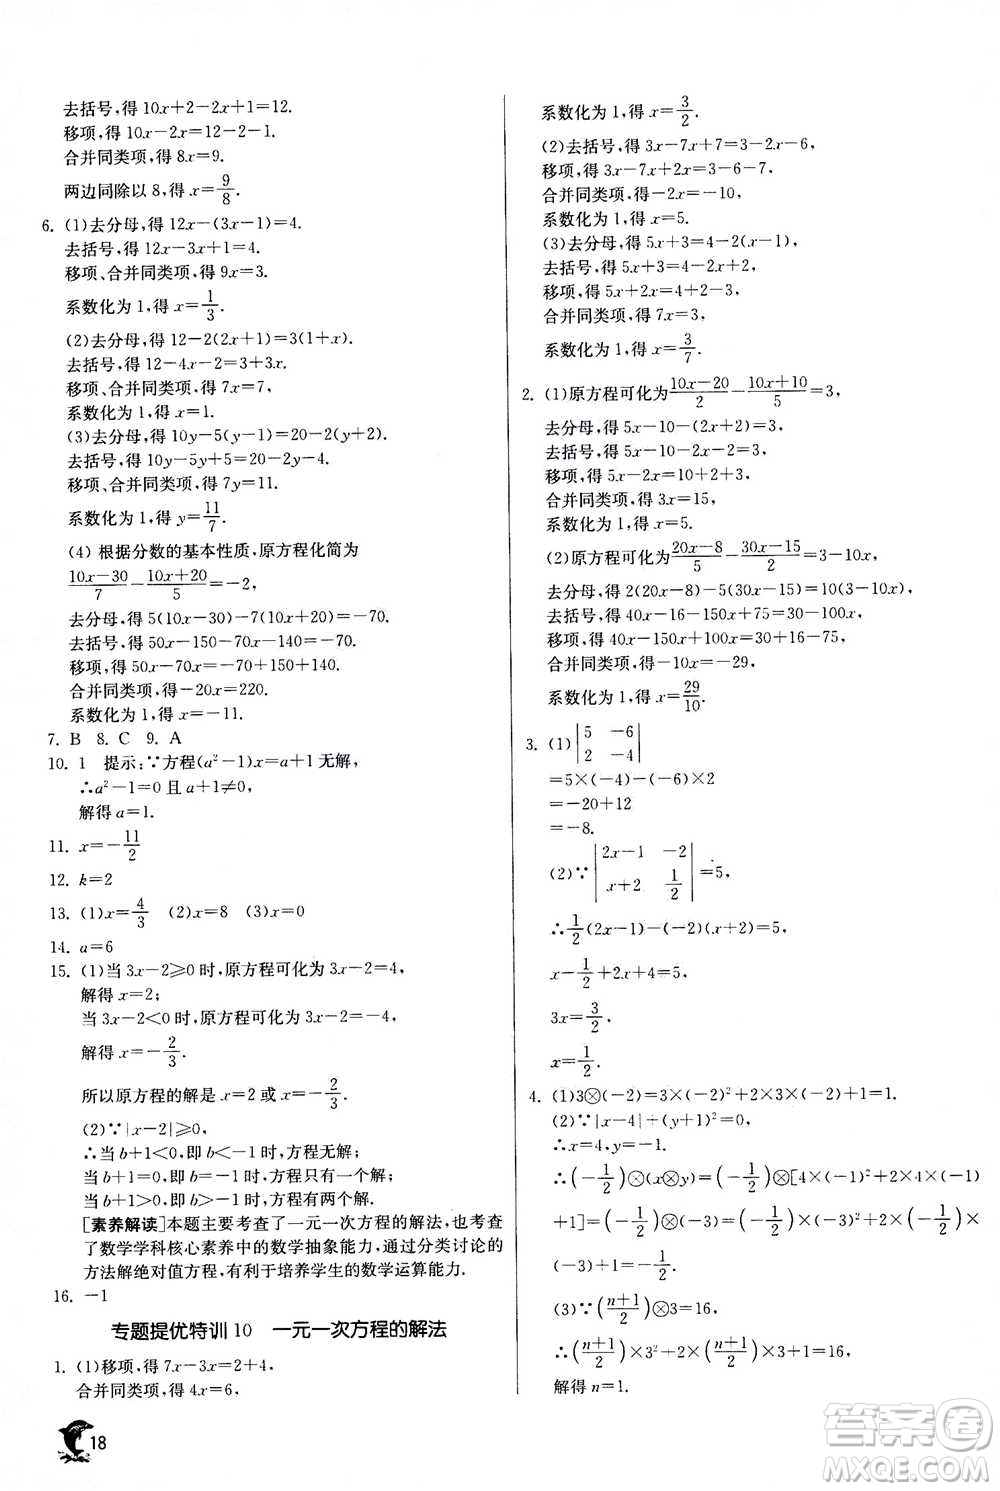 去括号,得 10x+2-2x+1=12.
移项,得 10x-2x=12-2-1.
合并同类项,得 8x=9.
两边同除以 8,得 x=9/8.
6. (1)去分母,得 12x-(3x-1)=4.
去括号,得 12x-3x+1=4.
移项、合并同类项,得 9x=3.
系数化为 1,得 x=1/3.
(2)去分母,得 12-2(2x+1)=3(1+x).
去括号,得 12-4x-2=3+3x.
移项、合并同类项,得 7x=7,
系数化为 1,得 x=1.
(3)去分母,得 10y-5(y-1)=20-2(y+2).
去括号,得 10y-5y+5=20-2y-4.
移项、合并同类项,得 7y=11.
系数化为 1,得 y=11/7.
(4) 根据分数的基本性质,原方程化简为
(10x-30)/7-(10x+20)/5=-2,
去分母,得 5(10x-30)-7(10x+20)=-70.
去括号,得 50x-150-70x-140=-70.
移项,得 50x-70x=-70+150+140.
合并同类项,得-20x=220.
系数化为 1,得 x=-11.
7. B 8. C 9. A
10. 1 提示:∵方程(a²-1)x=a+1 无解,
∴a²-1=0 且 a+1≠0,
解得 a=1.
11. x=-11/2
12. k=2
13. (1)x=4/3 (2)x=8 (3)x=0
14. a=6
15. (1)当 3x-2≥0 时,原方程可化为 3x-2=4,
解得 x=2;
当 3x-2<0 时,原方程可化为 3x-2=-4,
解得 x=-2/3.
所以原方程的解是 x=2 或 x=-2/3.
(2)∵|x-2|≥0,
∴当 b+1<0,即 b<-1 时,方程无解;
当 b+1=0,即 b=-1 时,方程只有一个解;
当 b+1>0,即 b>-1 时,方程有两个解.
[素养解读]本题主要考查了一元一次方程的解法,也考查
了数学学科核心素养中的数学抽象能力,通过分类讨论的
方法解绝对值方程,有利于培养学生的数学运算能力.
16. -1
专题提优特训 10 一元一次方程的解法
1. (1)移项,得 7x-3x=2+4,
合并同类项,得 4x=6,
18
系数化为 1,得 x=3/2.
(2)去括号,得 3x-7x+7=3-2x-6,
移项,得 3x-7x+2x=3-6-7,
合并同类项,得-2x=-10,
系数化为 1,得 x=5.
(3)去分母,得 5x+3=4-2(x-1),
去括号,得 5x+3=4-2x+2,
移项,得 5x+2x=4+2-3,
合并同类项,得 7x=3,
系数化为 1,得 x=3/7.
2. (1)原方程可化为(10x-20)/2-(10x+10)/5=3,
去分母,得 5x-10-(2x+2)=3,
去括号,得 5x-10-2x-2=3,
移项,得 5x-2x=10+2+3,
合并同类项,得 3x=15,
系数化为 1,得 x=5.
(2)原方程可化为(20x-8)/5-(30x-15)/2=3-10x,
去分母,得 2(20x-8)-5(30x-15)=10(3-10x),
去括号,得 40x-16-150x+75=30-100x,
移项,得 40x-150x+100x=30+16-75,
合并同类项,得-10x=-29,
系数化为 1,得 x=29/10.
3. (1)|5 -6|
|2 -4|
=5×(-4)-(-6)×2
=-20+12
=-8.
(2)∵|2x-1 -2|
|x+2 1/2|=5,
∴1/2(2x-1)-(-2)(x+2)=5,
x-1/2+2x+4=5,
3x=3/2,
x=1/2.
4. (1)3⊗(-2)=3×(-2)²+2×3×(-2)+1=1.
(2)∵|x-4|+(y+1)²=0,
∴x=4,y=-1.
∴(-1/2)⊗(x⊗y)=(-1/2)⊗[4×(-1)²+2×4×(-1)
+1]=(-1/2)⊗(-3)=(-1/2)×(-3)²+2×(-1/2)×
(-3)+1=-1/2.
(3)∵((n+1)/2)⊗3=16,
∴((n+1)/2)×3²+2×((n+1)/2)×3+1=16,
解得 n=1.
答案圈
MXQE.COM